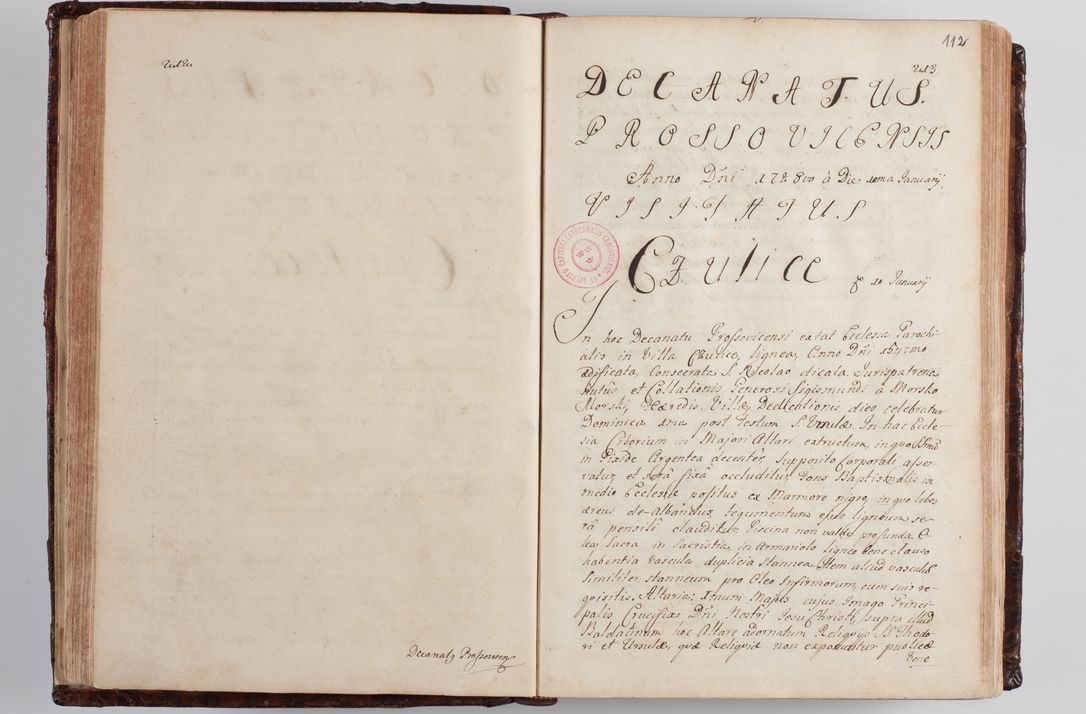 Decanatus Prossovien
112
DECANATUS.
PROSSOVICENSIS
Anno Dni 17 à Die 10ma January
VISITATUS
Czulice
10 January
In hoc Decanatu Prossovicensi extat Ecclesia Parochi-
alis in Villa Czulice, lignea, Anno Dni
ædificata, Consecrata, S. Nicolao dicata Jurispatrona-
tus et Collationis Generosi Sigismundi à Morsko
Morski, Hæredis Villæ, Dedicationis dies celebratur
Dominica 1ma post Festum S. Ursulæ. In hac Eccle-
sia Ciborium in Majori Altari extructum, in quo
in Pixide Argentea decenter, supposito Corporali asser-
vatur, et serâ fixâ occluditur, Fons Baptismalis in
medio Ecclesiæ positus ex Marmore nigro, in quo lebes
æreus de-albandus, tegumentum ejus ligneum, se-
râ pensili clauditur. Piscina non valde profunda. O-
lea Sacra in Sacristia, in Armariolo ligneo bene clauso
habentia vascula duplicia stannea, Item aliud vasculū
similiter stanneum pro Oleo Infirmorum cum suis re-
qvisitis. Altaria: Unum Majus cujus Imago Princi-
palis Crucifixi Dni Nostri Jesu Christi, supra illud
Baldacinum hoc Altare adornatum Reliquijs SS. Theodo-
ri et Ursulæ, quæ Reliquiæ non exponuntur publicè
bene